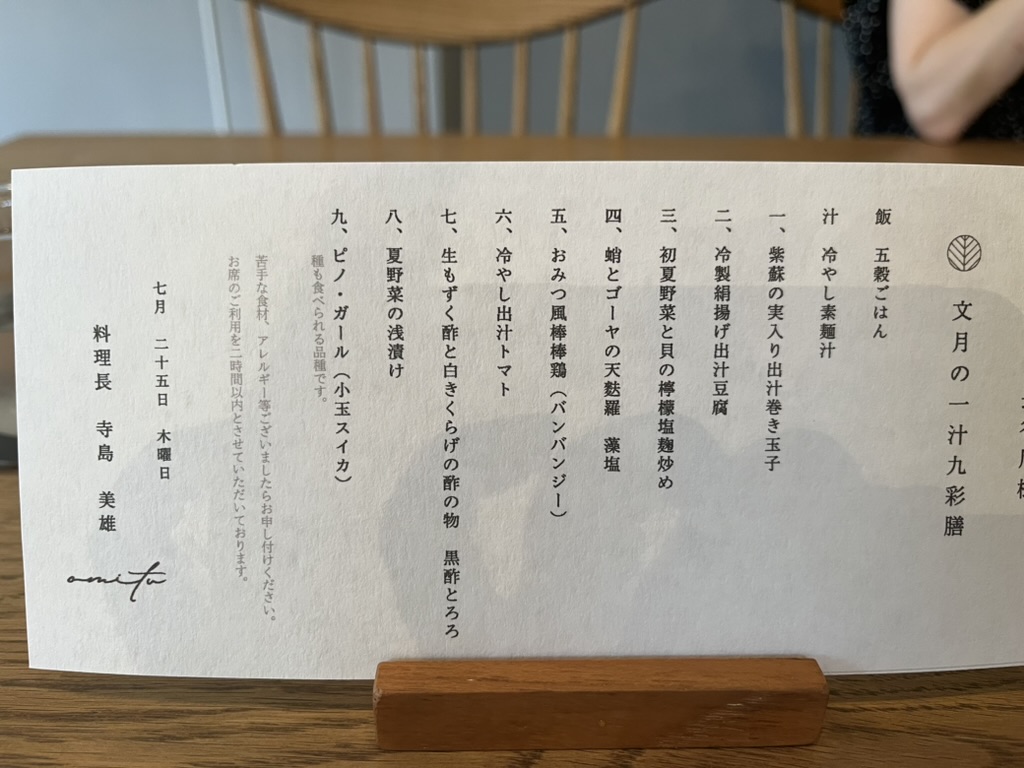 文月の一汁九彩膳
飯　五穀ごはん
汁　冷やし素麺汁
一、紫蘇の実入り出汁巻き玉子
二、冷製絹揚げ出汁豆腐
三、初夏野菜と貝の檸檬塩麹炒め
四、蛸とゴーヤの天麩羅　藻塩
五、おみつ風棒棒鶏（バンバンジー）
六、冷やし出汁トマト
七、生もずく酢と白きくらげの酢の物　黒酢とろろ
八、夏野菜の浅漬け
九、ピノ・ガール（小玉スイカ）
種も食べられる品種です。
苦手な食材、アレルギー等ございましたらお申し付けください。
お席のご利用を二時間以内とさせていただいております。
七月　二十五日　木曜日
料理長　寺島　美雄
omitu